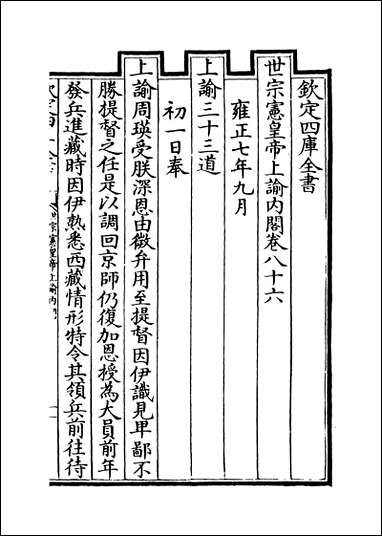 欽定四庫全書
世宗憲皇帝上諭內閣卷八十六
雍正七年九月
上諭三十三道
初一日奉
上諭周瑛受朕深恩由微弁用至提督因伊識見卑鄙不
勝提督之任是以調回京師仍復加恩授為大員前年
發兵進藏時因伊熟悉西藏情形特令其領兵前往待
世宗憲皇帝上諭內閣